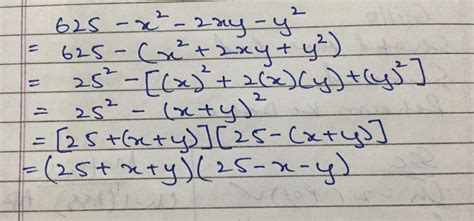 625 - x² - 2xy - y²
= 625 - (x² + 2xy + y²)
= 25² - [(x)² + 2(x)(y) + (y)²]
= 25² - (x+y)²
= [25 + (x+y)][25 - (x+y)]
= (25 + x + y)(25 - x - y)